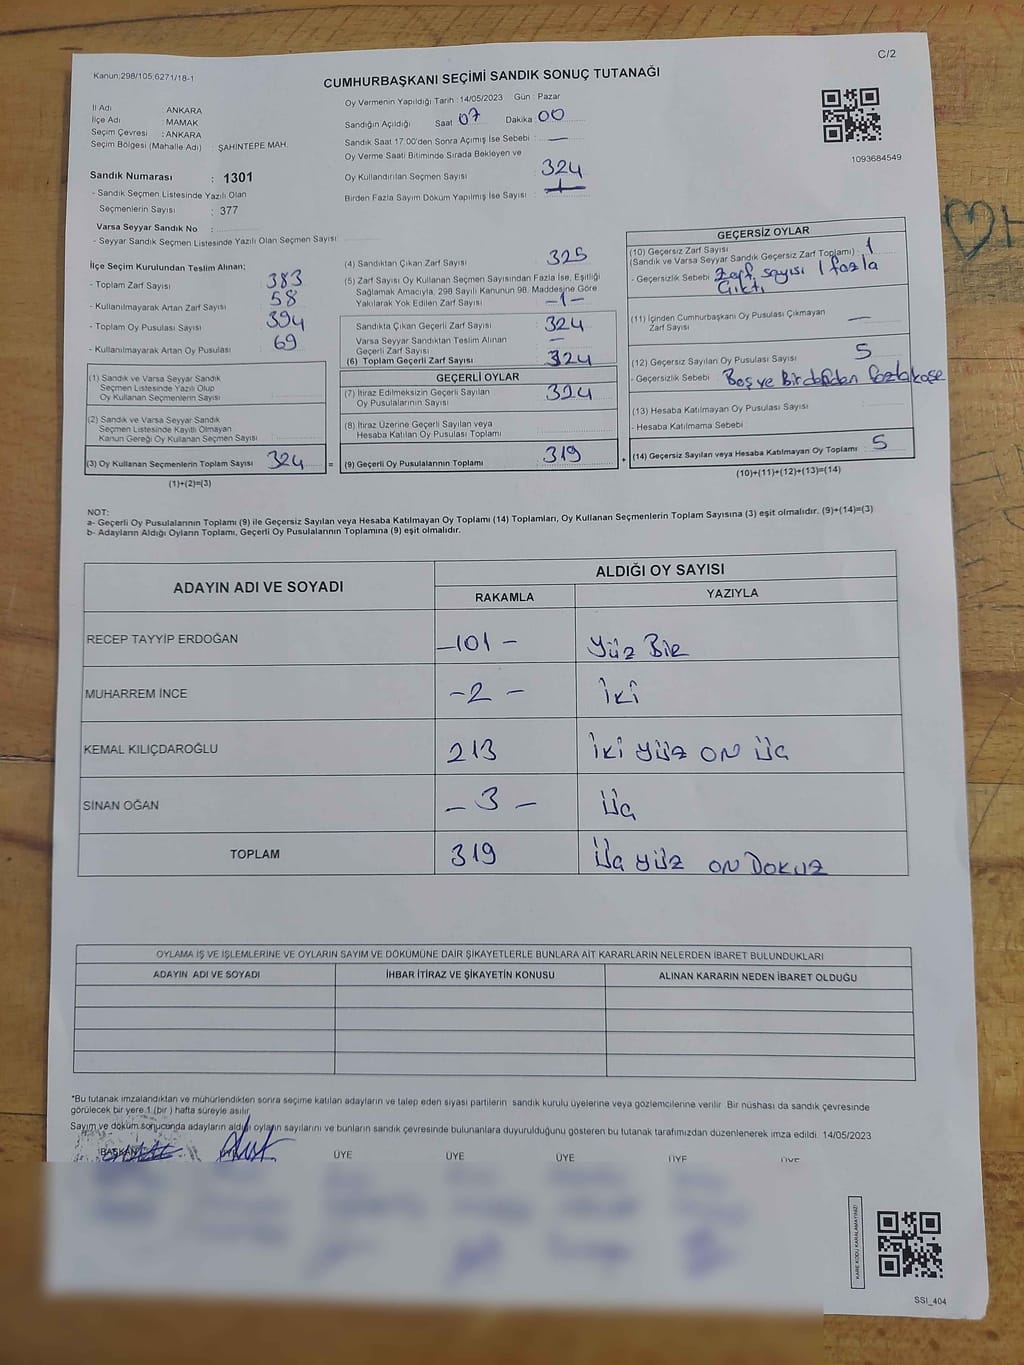 C/2
Kanun:298/105;6271/18-1
CUMHURBAŞKANI SEÇİMİ SANDIK SONUÇ TUTANAĞI
İl Adı : ANKARA
İlçe Adı : MAMAK
Seçim Çevresi : ANKARA
Seçim Bölgesi (Mahalle Adı) : ŞAHİNTEPE MAH.
Oy Vermenin Yapıldığı Tarih : 14/05/2023 Gün : Pazar
Sandığın Açıldığı Saat 07 Dakika 00
Sandık Saat 17.00'den Sonra Açımış İse Sebebi : —
Oy Verme Saati Bitiminde Sırada Bekleyen ve
Oy Kullandırılan Seçmen Sayısı : 324
Birden Fazla Sayım Döküm Yapılmış İse Sayısı :
1093684549
Sandık Numarası : 1301
- Sandık Seçmen Listesinde Yazılı Olan
Seçmenlerin Sayısı : 377
Varsa Seyyar Sandık No :
- Seyyar Sandık Seçmen Listesinde Yazılı Olan Seçmen Sayısı:
İlçe Seçim Kurulundan Teslim Alınan:
- Toplam Zarf Sayısı : 383
- Kullanılmayarak Artan Zarf Sayısı : 58
- Toplam Oy Pusulası Sayısı : 394
- Kullanılmayarak Artan Oy Pusulası : 69
(1) Sandık ve Varsa Seyyar Sandık
Seçmen Listesinde Yazılı Olup
Oy Kullanan Seçmenlerin Sayısı :
(2) Sandık ve Varsa Seyyar Sandık
Seçmen Listesinde Kayıtlı Olmayan
Kanun Gereği Oy Kullanan Seçmen Sayısı :
(3) Oy Kullanan Seçmenlerin Toplam Sayısı 324
(1)+(2)=(3)
(4) Sandıktan Çıkan Zarf Sayısı : 325
(5) Zarf Sayısı Oy Kullanan Seçmen Sayısından Fazla İse, Eşitliği
Sağlamak Amacıyla, 298 Sayılı Kanunun 98. Maddesine Göre
Yakılarak Yok Edilen Zarf Sayısı : -1-
Sandıkta Çıkan Geçerli Zarf Sayısı : 324
Varsa Seyyar Sandıktan Teslim Alınan
Geçerli Zarf Sayısı : —
(6) Toplam Geçerli Zarf Sayısı : 324
GEÇERLİ OYLAR
(7) İtiraz Edilmeksizin Geçerli Sayılan
Oy Pusulalarının Sayısı : 324
(8) İtiraz Üzerine Geçerli Sayılan veya
Hesaba Katılan Oy Pusulası Toplamı :
= (9) Geçerli Oy Pusulalarının Toplamı : 319 +
GEÇERSİZ OYLAR
(10) Geçersiz Zarf Sayısı
(Sandık ve Varsa Seyyar Sandık Geçersiz Zarf Toplamı) : 1
- Geçersizlik Sebebi : Zarf sayısı 1 fazla
Çıktı
(11) İçinden Cumhurbaşkanı Oy Pusulası Çıkmayan
Zarf Sayısı : —
(12) Geçersiz Sayılan Oy Pusulası Sayısı : 5
- Geçersizlik Sebebi : Boş ve Birden fazla kaşe
(13) Hesaba Katılmayan Oy Pusulası Sayısı :
- Hesaba Katılmama Sebebi :
(14) Geçersiz Sayılan veya Hesaba Katılmayan Oy Toplamı : 5
(10)+(11)+(12)+(13)=(14)
NOT:
a- Geçerli Oy Pusulalarının Toplamı (9) ile Geçersiz Sayılan veya Hesaba Katılmayan Oy Toplamı (14) Toplamları, Oy Kullanan Seçmenlerin Toplam Sayısına (3) eşit olmalıdır. (9)+(14)=(3)
b- Adayların Aldığı Oyların Toplamı, Geçerli Oy Pusulalarının Toplamına (9) eşit olmalıdır.
ADAYIN ADI VE SOYADI ALDIĞI OY SAYISI
RAKAMLA YAZIYLA
RECEP TAYYİP ERDOĞAN -101- Yüz Bir
MUHARREM İNCE -2- İki
KEMAL KILIÇDAROĞLU 213 İki Yüz on üç
SİNAN OĞAN -3- Üç
TOPLAM 319 Üç yüz on Dokuz
OYLAMA İŞ VE İŞLEMLERİNE VE OYLARIN SAYIM VE DÖKÜMÜNE DAİR ŞİKAYETLERLE BUNLARA AİT KARARLARIN NELERDEN İBARET BULUNDUKLARI
ADAYIN ADI VE SOYADI İHBAR İTİRAZ VE ŞİKAYETİN KONUSU ALINAN KARARIN NEDEN İBARET OLDUĞU
*Bu tutanak imzalandıktan ve mühürlendikten sonra seçime katılan adayların ve talep eden siyasi partilerin sandık kurulu üyelerine veya gözlemcilerine verilir. Bir nüshası da sandık çevresinde
görülecek bir yere 1 (bir) hafta süreyle asılır.
Sayım ve döküm sonucunda adayların aldığı oyların sayılarını ve bunların sandık çevresinde bulunanlara duyurulduğunu gösteren bu tutanak tarafımızdan düzenlenerek imza edildi. 14/05/2023
BAŞKAN ÜYE ÜYE ÜYE ÜYE ÜYE ÜYE
KARE KODU KARALAMAYINIZ!
SSI_404